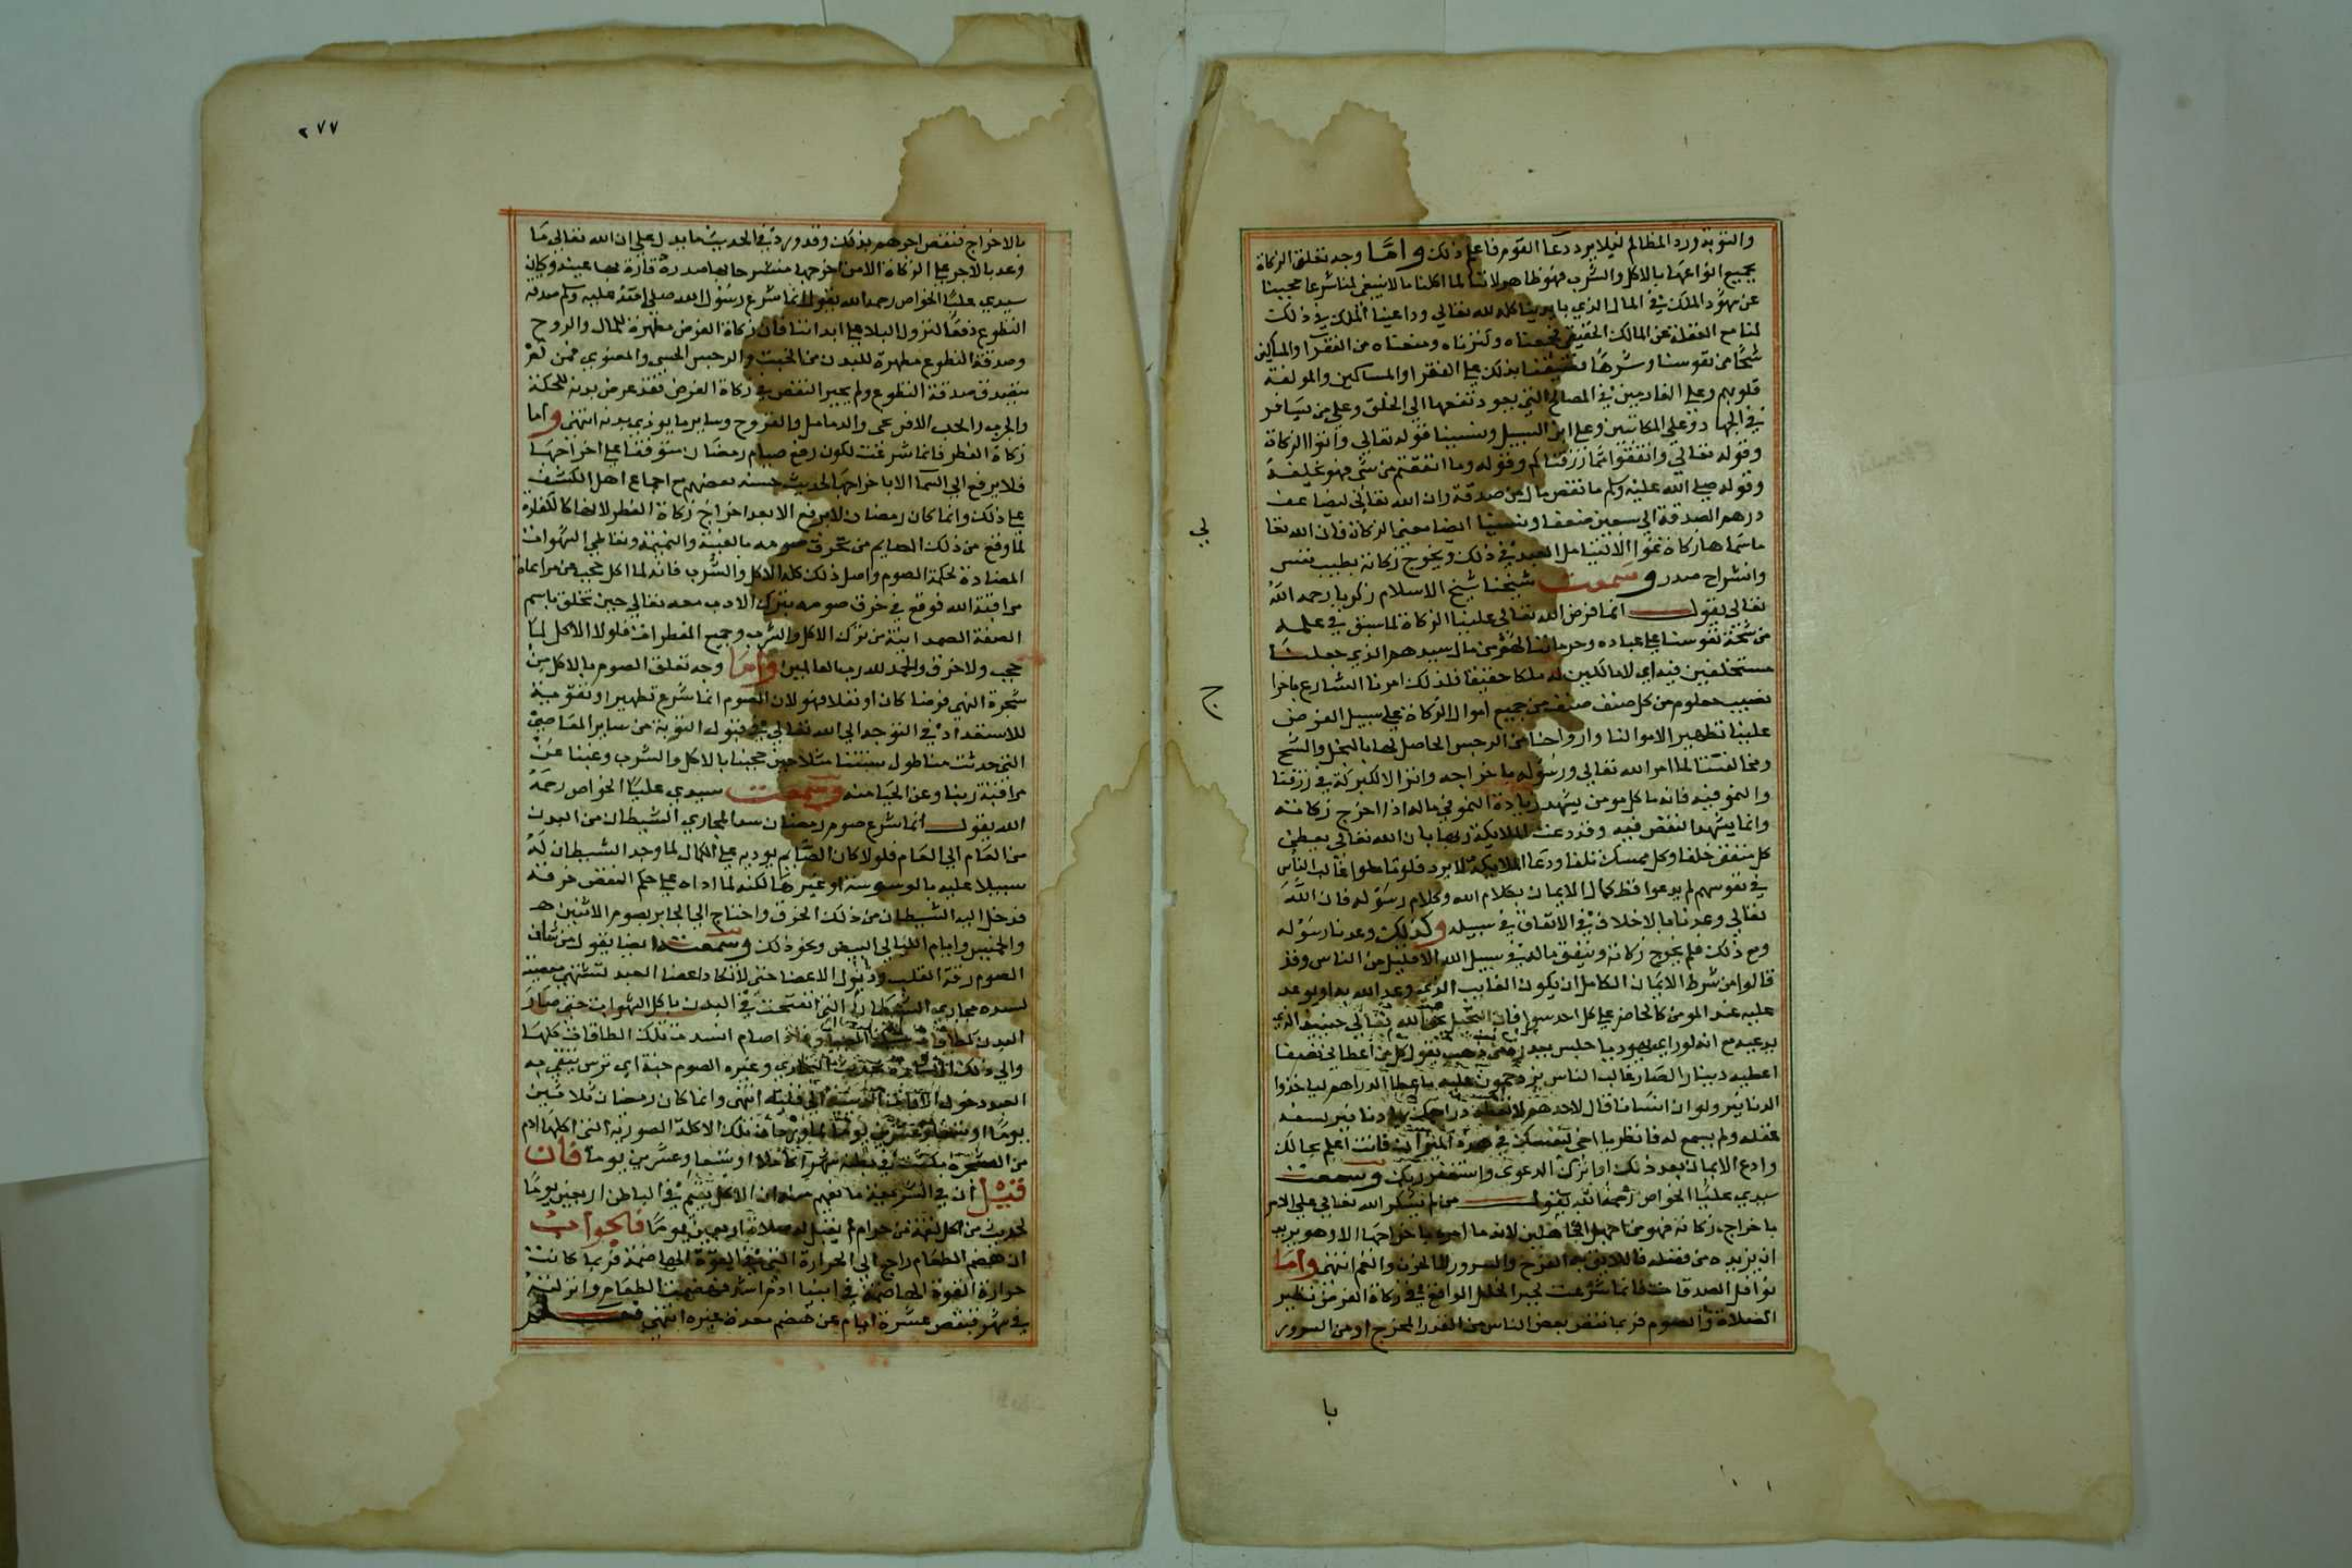 والتوبة ورد المظالم لئلا يرد دعا القوم فاعلم ذلك واما وجه تعلق الزكاة
بجميع انواعها بالاكل والشرب فهو ظاهر لاننا لما اكلنا ما لا ينبغي لنا شرعا حجبنا
عن شهود الملك في المال الذي بايدينا كله لله تعالي وداعينا الملك في ذلك
لنا مع الغفلة عن المالك الحقيقي فجمعناه وكنزناه ومنعناه من الفقرا والمساكين
شحا من نفوسنا وشرها بذلك علي الفقرا والمساكين والمولفة
قلوبهم وعلي الغارمين في المصالح التي يعود نفعها الي الخلق وعلي من يسافر
في الجهاد وعلي المكاتبين وعلي ابن السبيل ونسينا قوله تعالي واتوا الزكاة
وقوله تعالي وانفقوا مما رزقناكم وقوله وما انفقتم من شي فهو يخلفه
وقوله صلي الله عليه وسلم ما نقص مال من صدقة وان الله تعالي ليضاعف
درهم الصدقة الي سبعين ضعفا ونسينا ايضا معني الزكاة فان الله تعا
ما سماها زكاة نموا الا لينامل العبد في ذلك ويخرج زكاته بطيب نفس
وانشراح صدر وسمعت شيخنا شيخ الاسلام زكريا رحمه الله
تعالي يقول انما فرض الله تعالي علينا الزكاة لما سبق في علمه
من شحة نفوسنا علي عباده وحرماننا لهم من مال سيدهم الذي جعلنا
مستخلفين فيه اي لا مالكين له ملكا حقيقا فلذلك امرنا الشارع باخرا
نصيب معلوم من كل صنف صنف من جميع اموال الزكاة علي سبيل الفرض
علينا تطهيرا لاموالنا وارواحنا من الرجس الحاصل لها بالبخل والشح
ومخالفتنا لما امر الله تعالي ورسوله باخراجه وانزالا لبركة في رزقنا
والنمو فيه فانه ما كل مومن يشهد زيادة النمو في ماله اذا اخرج زكاته
وانما يشهد النقص فيه وقد دعت الملايكة ربها بان الله تعالي يعطي
كل منفق خلفا وكل ممسك تلفا ودعا الملايكة لا يرد فلو غالب الناس
في نفوسهم لم يدعوا قط كمال الايمان بكلام الله وكلام رسوله فان الله
تعالي وعدنا بالاخلاف في الانفاق في سبيله وكذلك وعدنا رسوله
ومع ذلك فلم يخرج زكاته وينفق ماله في سبيل الله الا قليل من الناس وقد
قالوا من شرط الايمان الكامل ان يكون الغايب الذي وعد الله به او يوعد
عليه عند المومن كالحاضر علي كل احد سوا فان
يدعيه مع انه لو راي يهوديا جلس بجد ذهب يقول كل من اعطاني نصفا
اعطيه دينارا لصار غالب الناس يزدحمون عليه باعطا الدراهم لياخذوا
الدنانير ولو ان انسانا قال لاحدهم لا دراهمك دنانير لسفه
عقله ولم يسمع له فانظر يا اخي لنفسك في هذه الميزان فانت اعلم بحالك
وادع الايمان بعد ذلك او اترك الدعوي واستغفر ربك وسمعت
سيدي عليا الخواص رحمه الله يقول من لم يشكر الله تعالي علي الامر
باخراج زكاته فهو من اجهل الجاهلين لانه ما امره باخراجها الا وهو يريد
ان يزيده من فضله فاللايق به الفرح والسرور لا الحزن والغم انتهي واما
نوافل الصدقات فانما شرعت لجبر الخلل الواقع في زكاة الفرض نظير
الصلاة والصوم فربما نقص بعض الناس من القدر المخرج او من السرور
با
٢٧٧
بالاخراج فنقص اجرهم بذلك وقد ورد في الحديث ما يدل علي ان الله تعالي ما
وعد بالاجر علي الزكاة الا من اخرجها منشرحا بها صدره قارة بها عينه وكان
سيدي عليا الخواص رحمه الله يقول انما شرع رسول الله صلي الله عليه وسلم صدقة
التطوع دفعا لنزول البلا علي ابداننا فان زكاة الفرض مطهرة للمال والروح
وصدقة التطوع مطهرة للبدن من الخبث والرجس الحسي والمعنوي فمن لم
يتصدق صدقة التطوع ولم يجبر النقص في زكاة الفرض فقد عرض بدنه للحكة
والجرب والحب الافرنجي والدمامل والقروح وساير ما يوذي بدنه انتهي واما
زكاة الفطر فانما شرعت لكون رفع صيام رمضان متوقفا علي اخراجها
فلا يرفع الي السما الا باخراجها الحديث حسنه بعضهم مع اجماع اهل الكشف
علي ذلك وانما كان رمضان لا يرفع الا بعد اخراج زكاة الفطر لانها كالكفارة
لما وقع من ذلك الصايم من تخرق صومه بالغيبة والنميمة وتعاطي الشهوات
المضادة لحكمة الصوم واصل ذلك كله الاكل والشرب فانه لما اكل حجب عن مراعاة
مراقبة الله فوقع في خرق صومه بترك الادب معه تعالي حين تخلق باسم
الصفة الصمدانية من ترك الاكل والشرب وجميع المفطرات فلولا الاكل لما
حجب ولا خرق والحمد لله رب العالمين واما وجه تعلق الصوم بالاكل من
شجرة النهي فرضا كان او نفلا فهو لان الصوم انما شرع تطهيرا وتقوية
للاستعداد في التوجه الي الله تعالي في قبول التوبة من ساير المعاصي
التي حدثت منا طول سنتنا مثلا حين حجبنا بالاكل والشرب وغبنا عن
مراقبة ربنا وعن الحيا منه وسمعت سيدي عليا الخواص رحمه
الله يقول انما شرع صوم رمضان سدا لمجاري الشيطان من البدن
من العام الي العام فلولا كان الصايم يوديه علي الكمال لما وجد الشيطان له
سبيلا عليه بالوسوسة او غيرها لكنه لما اداه علي حكم النقص خرقه
فدخل اليه الشيطان من ذلك الخرق واحتاج الي الجابر بصوم الاثنين
والخميس وايام الليالي البيض ونحو ذلك وسمعته ايضا يقول من شان
الصوم رقة القلب وذبول الاعضا حتي لا تكاد اعضا العبد تشتهي معصية
لسده مجاري الشيطان التي انفتحت في البدن باكل الشهوات حتي صار
البدن كطاقات اصام انسدت تلك الطاقات كلها
والي ذلك الاشارة بحديث البخاري وغيره الصوم جنة اي ترس يتقي به
العبد دخول الي قلبه انتهي وانما كان رمضان ثلاثين
يوما او تسعا وعشرين يوما لما ورد ان تلك الاكلة الصورية التي اكلها ادم
من الشجرة مكثت في بطنه شهرا كاملا او تسعا وعشرين يوما فان
قيل ان في الشريعة ما يفهم منه ان الاكل يقيم في الباطن اربعين يوما
لحديث من اكل لقمة من حرام لم يقبل له صلاة اربعين يوما فالجواب
ان هضم الطعام راجع الي الحرارة التي في القوة الهاضمة فربما كانت
حرارة القوة الهاضمة في ابينا ادم اشد فهضمت الطعام وانزلته
في شهر فنقص عشرة ايام عن هضم معدة غيره انتهي